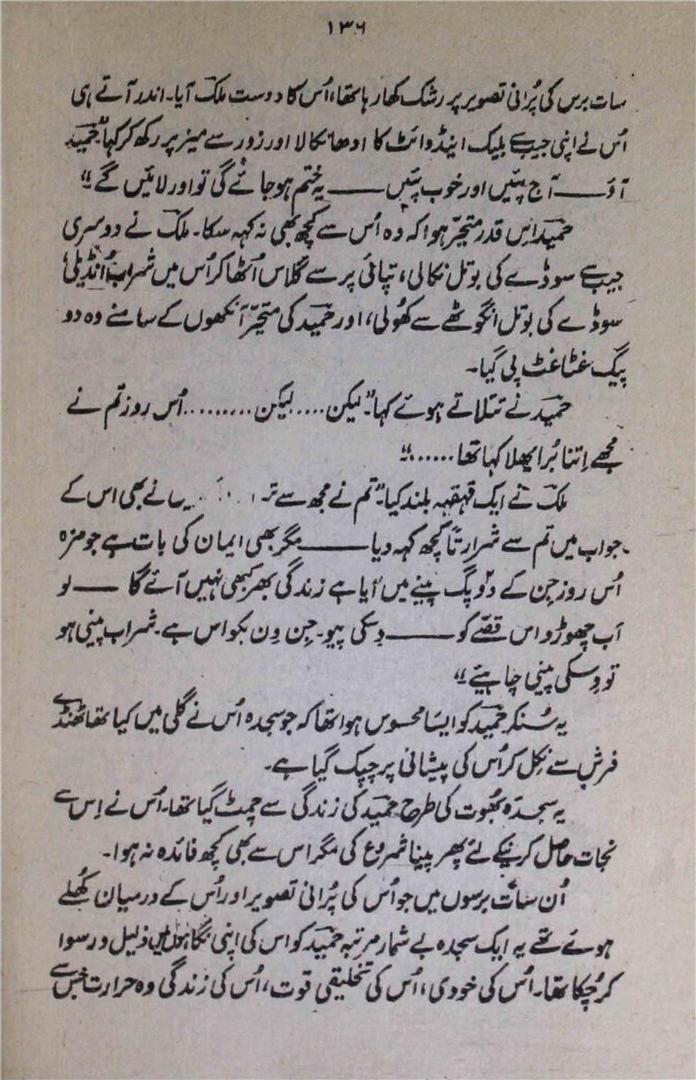 ۱۳۶
سات برس کی پُرانی تصویر پر رشک کھا رہا تھا، اُس کا دوست ملک آیا۔ اندر آتے ہی
اُس نے اپنی جیب سے بلیک اینڈ وائٹ کا ادھا نکالا اور زور سے میز پر رکھ کر کہا "حمید
آؤ ـــــ آج پئیں اور خوب پئیں ـــــ یہ ختم ہو جائے گی تو اور لائیں گے"
حمید اِس قدر متحیّر ہوا کہ وہ اُس سے کچھ بھی نہ کہہ سکا۔ ملک نے دوسری
جیب سے سوڈے کی بوتل نکالی، تپائی پر سے گلاس اُٹھا کر اُس میں شراب اُنڈیلی
سوڈے کی بوتل انگوٹھے سے کھولی، اور حمید کی متحیّر آنکھوں کے سامنے وہ دو
پیگ غٹاغٹ پی گیا۔
حمید نے تتلاتے ہوئے کہا "لیکن.... لیکن......... اُس روز تم نے
مجھے اِتنا بُرا بھلا کہا تھا......"
ملک نے ایک قہقہہ بلند کیا۔ "تم نے مجھ سے نے بھی اس کے
جواب میں تم سے شرارتاً کچھ کہہ دیا ـــــ مگر بھی ایمان کی بات ہے جو مزہ
اُس روز جِن کے دو پگ پینے میں آیا ہے زندگی بھر کبھی نہیں آئے گا ـــــ لو
اَب چھوڑو اس قصّے کو ـــــ وِسکی پیو۔ جِن وِن بکواس ہے۔ شراب پینی ہو
تو وِسکی پینی چاہیئے"
یہ سُنکر حمید کو ایسا محسوس ہوا تھا کہ جو سجدہ اُس نے گلی میں کیا تھا ٹھنڈے
فرش سے نِکل کر اُس کی پیشانی پر چپک گیا ہے۔
یہ سجدہ بھوت کی طرح حمید کی زندگی سے چمٹ گیا تھا۔ اُس نے اِس سے
نجات حاصل کرنیکے لئے پھر پینا شروع کی مگر اس سے بھی کچھ فائدہ نہ ہوا۔
اُن سات برسوں میں جو اُس کی پُرانی تصویر اور اُس کے درمیان کھُلے
ہوئے تھے یہ ایک سجدہ بے شمار مرتبہ حمید کو اس کی اپنی نگاہوں میں ذلیل و رسوا
کر چُکا تھا۔ اُس کی خودی، اُس کی تخلیقی قوت، اُس کی زندگی وہ حرارت جس سے